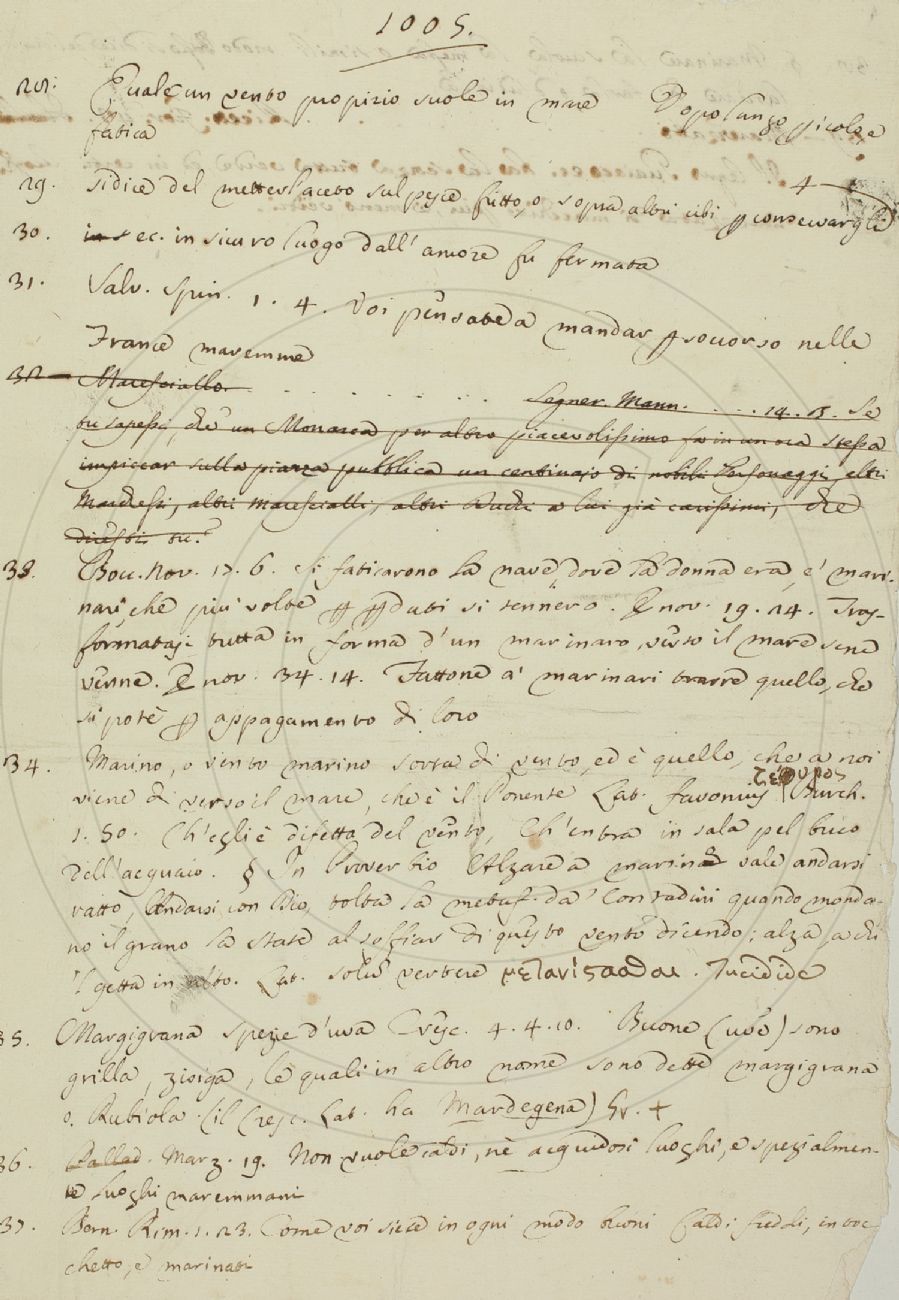 1005.
28. Quale un vento propizio suole in mare Dopo lunga, pericolosa
fatica
29. Si dice del mettere l'aceto sul pesce fritto, o sopra altri cibi p conservargli
30. ec. in sicuro luogo dall'amore fu fermata
31. Salv. Spin. 1. 4. Voi pensate a mandar p soccorso nelle
Franc maremme
32 Maresciallo . . . . . . . . Segner. Mann. . . . . 14. Se
tu sapessi, che un Monarca per altro piacevolissimo fa in un ora stessa
impiccar sulla piazza pubblica un centinajo di nobili Personaggi, altri
Marchesi, altri Marescialli, altri Duchi a lui già carissimi, che
diresti tu?
33. Bocc. Nov. 17. 6. Si faticarono la nave, dove la donna era, e' mari-
nari, che più volte p pduti si tennero. E nov. 19. 24. Tras-
formatasi tutta in forma d'un marinaro, verso il mare sene
venne. E nov. 34. 14. Fattone a' marinari trarre quello, che
si potè p appagamento di loro
34. Marino, o vento marino sorta di vento, ed è quello, che a noi
viene di verso il mare, che è il Ponente Lat. favonius ζέφυρος Burch.
1. 50. Ch'egli è difetto del vento, Ch'entra in sala pel buco
Dell'acquaio. § In Proverbio Alzare a marina vale andarsi
ratto, Andarsi con Dio, tolta la metaf. da' Contadini quando monda-
no il grano la state al soffiar di questo vento dicendo: alza, a chi
'l getta in alto. Lat. solū vertere μετανίςασθαι. Tucidide
35. Margigrana spezie d'uva Cresc. 4. 4. 10. Buone (uve) sono
grilla, zisiga, le quali in altro nome sono dette margigrana
o Rubiola (il Cresc. Lat. ha Mardegena) Gr. +
36. Pallad. Marz. 19. Non vuole caldi, nè acquidosi luoghi, e spezialmen-
te luoghi maremmani
37. Bern. Rim. 1. 23. Come voi siete in ogni modo buoni Caldi freddi, in toc
chetto, e marinati